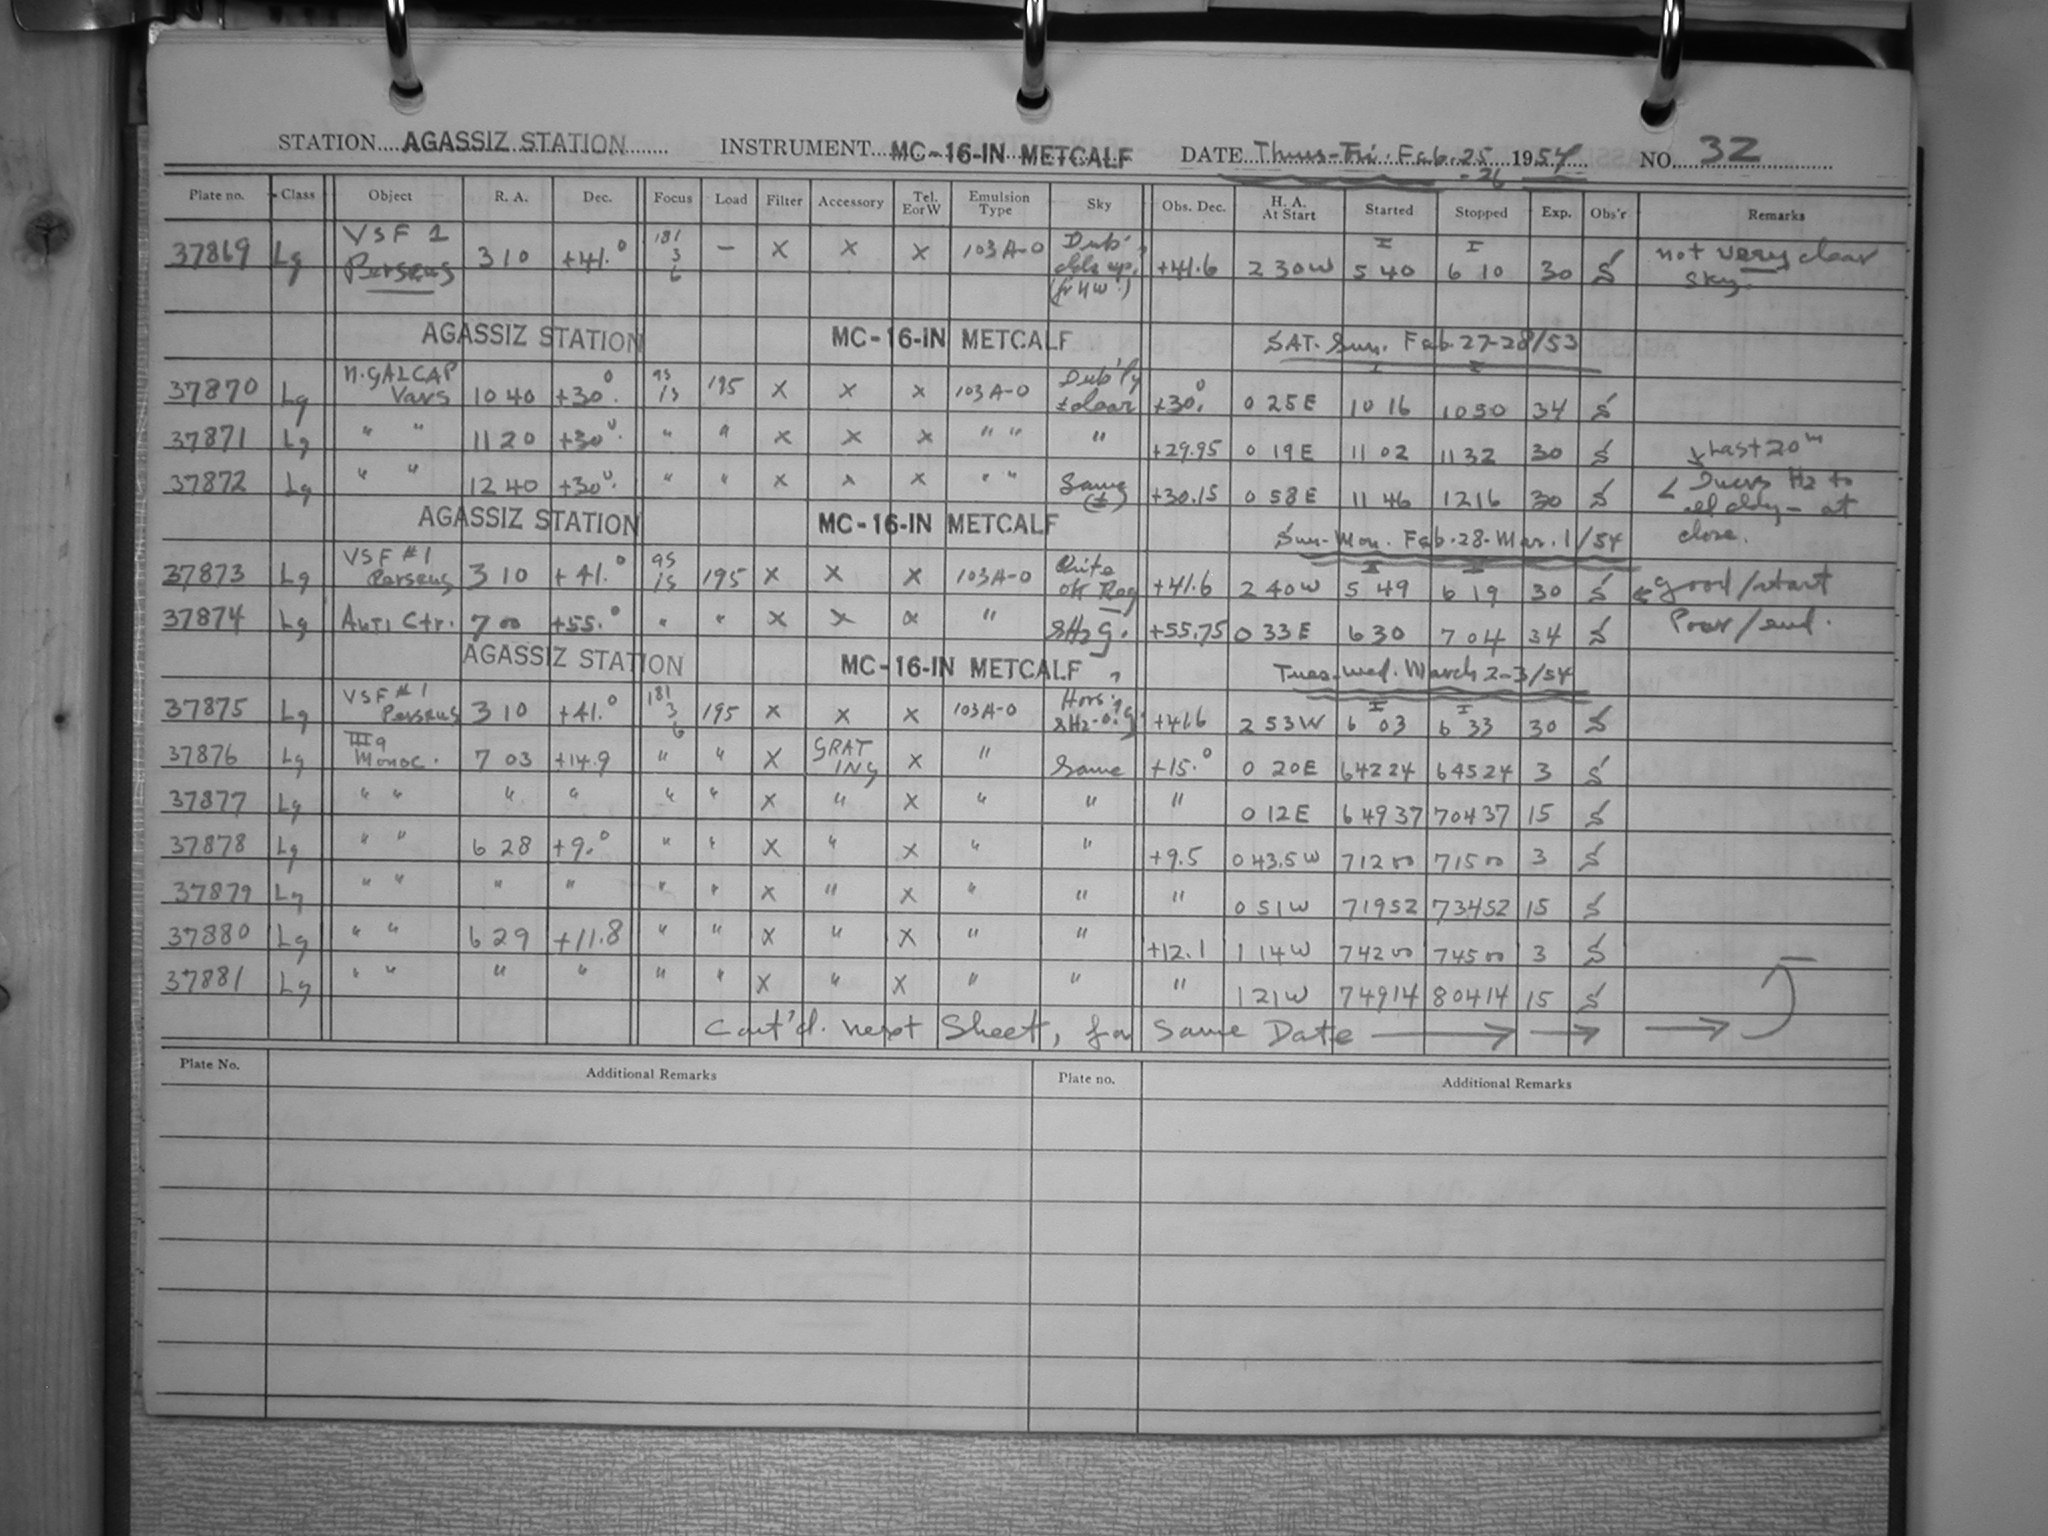 STATION AGASSIZ STATION INSTRUMENT MC-16-IN METCALF DATE Thurs-Fri. Feb. 25 -26 1954 NO. 32
Plate no. Class Object R. A. Dec. Focus Load Filter Accessory Tel. E or W Emulsion Type Sky Obs. Dec. H. A. At Start Started Stopped Exp. Obs'r Remarks
37869 Lg VSF 1 Perseus 3 10 +41.° 181 3 6 — X X X 103A-O +41.6 2 30W 5 40 6 10 30 not very clear sky.
AGASSIZ STATION MC-16-IN METCALF SAT. Sun. Feb. 27-28/53
37870 Lg N.GALCAP Vars 10 40 +30°. 95 15 195 X X X 103A-O Dub'ly ± clear +30.° 0 25E 10 16 10 50 34
37871 Lg " " 11 20 +30°. " " X X X " " " +29.95 0 19E 11 02 11 32 30 Last 20m
37872 Lg " " 12 40 +30°. " " X X X " " Same (±) +30.15 0 58E 11 46 12 16 30 Hz to cldy - at close.
AGASSIZ STATION MC-16-IN METCALF Sun-Mon. Feb. 28-Mar. 1/54
37873 Lg VSF #1 Perseus 3 10 +41.° 95 15 195 X X X 103A-O Quite ok Reg +41.6 2 40W 5 49 6 19 30 good/start
37874 Lg Anti Ctr. 7 00 +55.° " " X X X " SHzg. +55.75 0 33E 6 30 7 04 34 Poor/end.
AGASSIZ STATION MC-16-IN METCALF Tues-Wed. March 2-3/54
37875 Lg VSF #1 Perseus 3 10 +41.° 181 3 6 195 X X X 103A-O +41.6 2 53W 6 03 6 33 30
37876 Lg III9 Monoc. 7 03 +14.9 " " X GRATING X " Same +15.° 0 20E 6 42 24 6 45 24 3
37877 Lg " " " " " " X " X " " " 0 12E 6 49 37 7 04 37 15
37878 Lg " " 6 28 +9.° " " X " X " " +9.5 0 43.5W 7 12 00 7 15 00 3
37879 Lg " " " " " " X " X " " " 0 51W 7 19 52 7 34 52 15
37880 Lg " " 6 29 +11.8 " " X " X " " +12.1 1 14W 7 42 00 7 45 00 3
37881 Lg " " " " " " X " X " " " 1 21W 7 49 14 8 04 14 15
Cont'd. next Sheet, for Same Date
Plate No. Additional Remarks Plate no. Additional Remarks